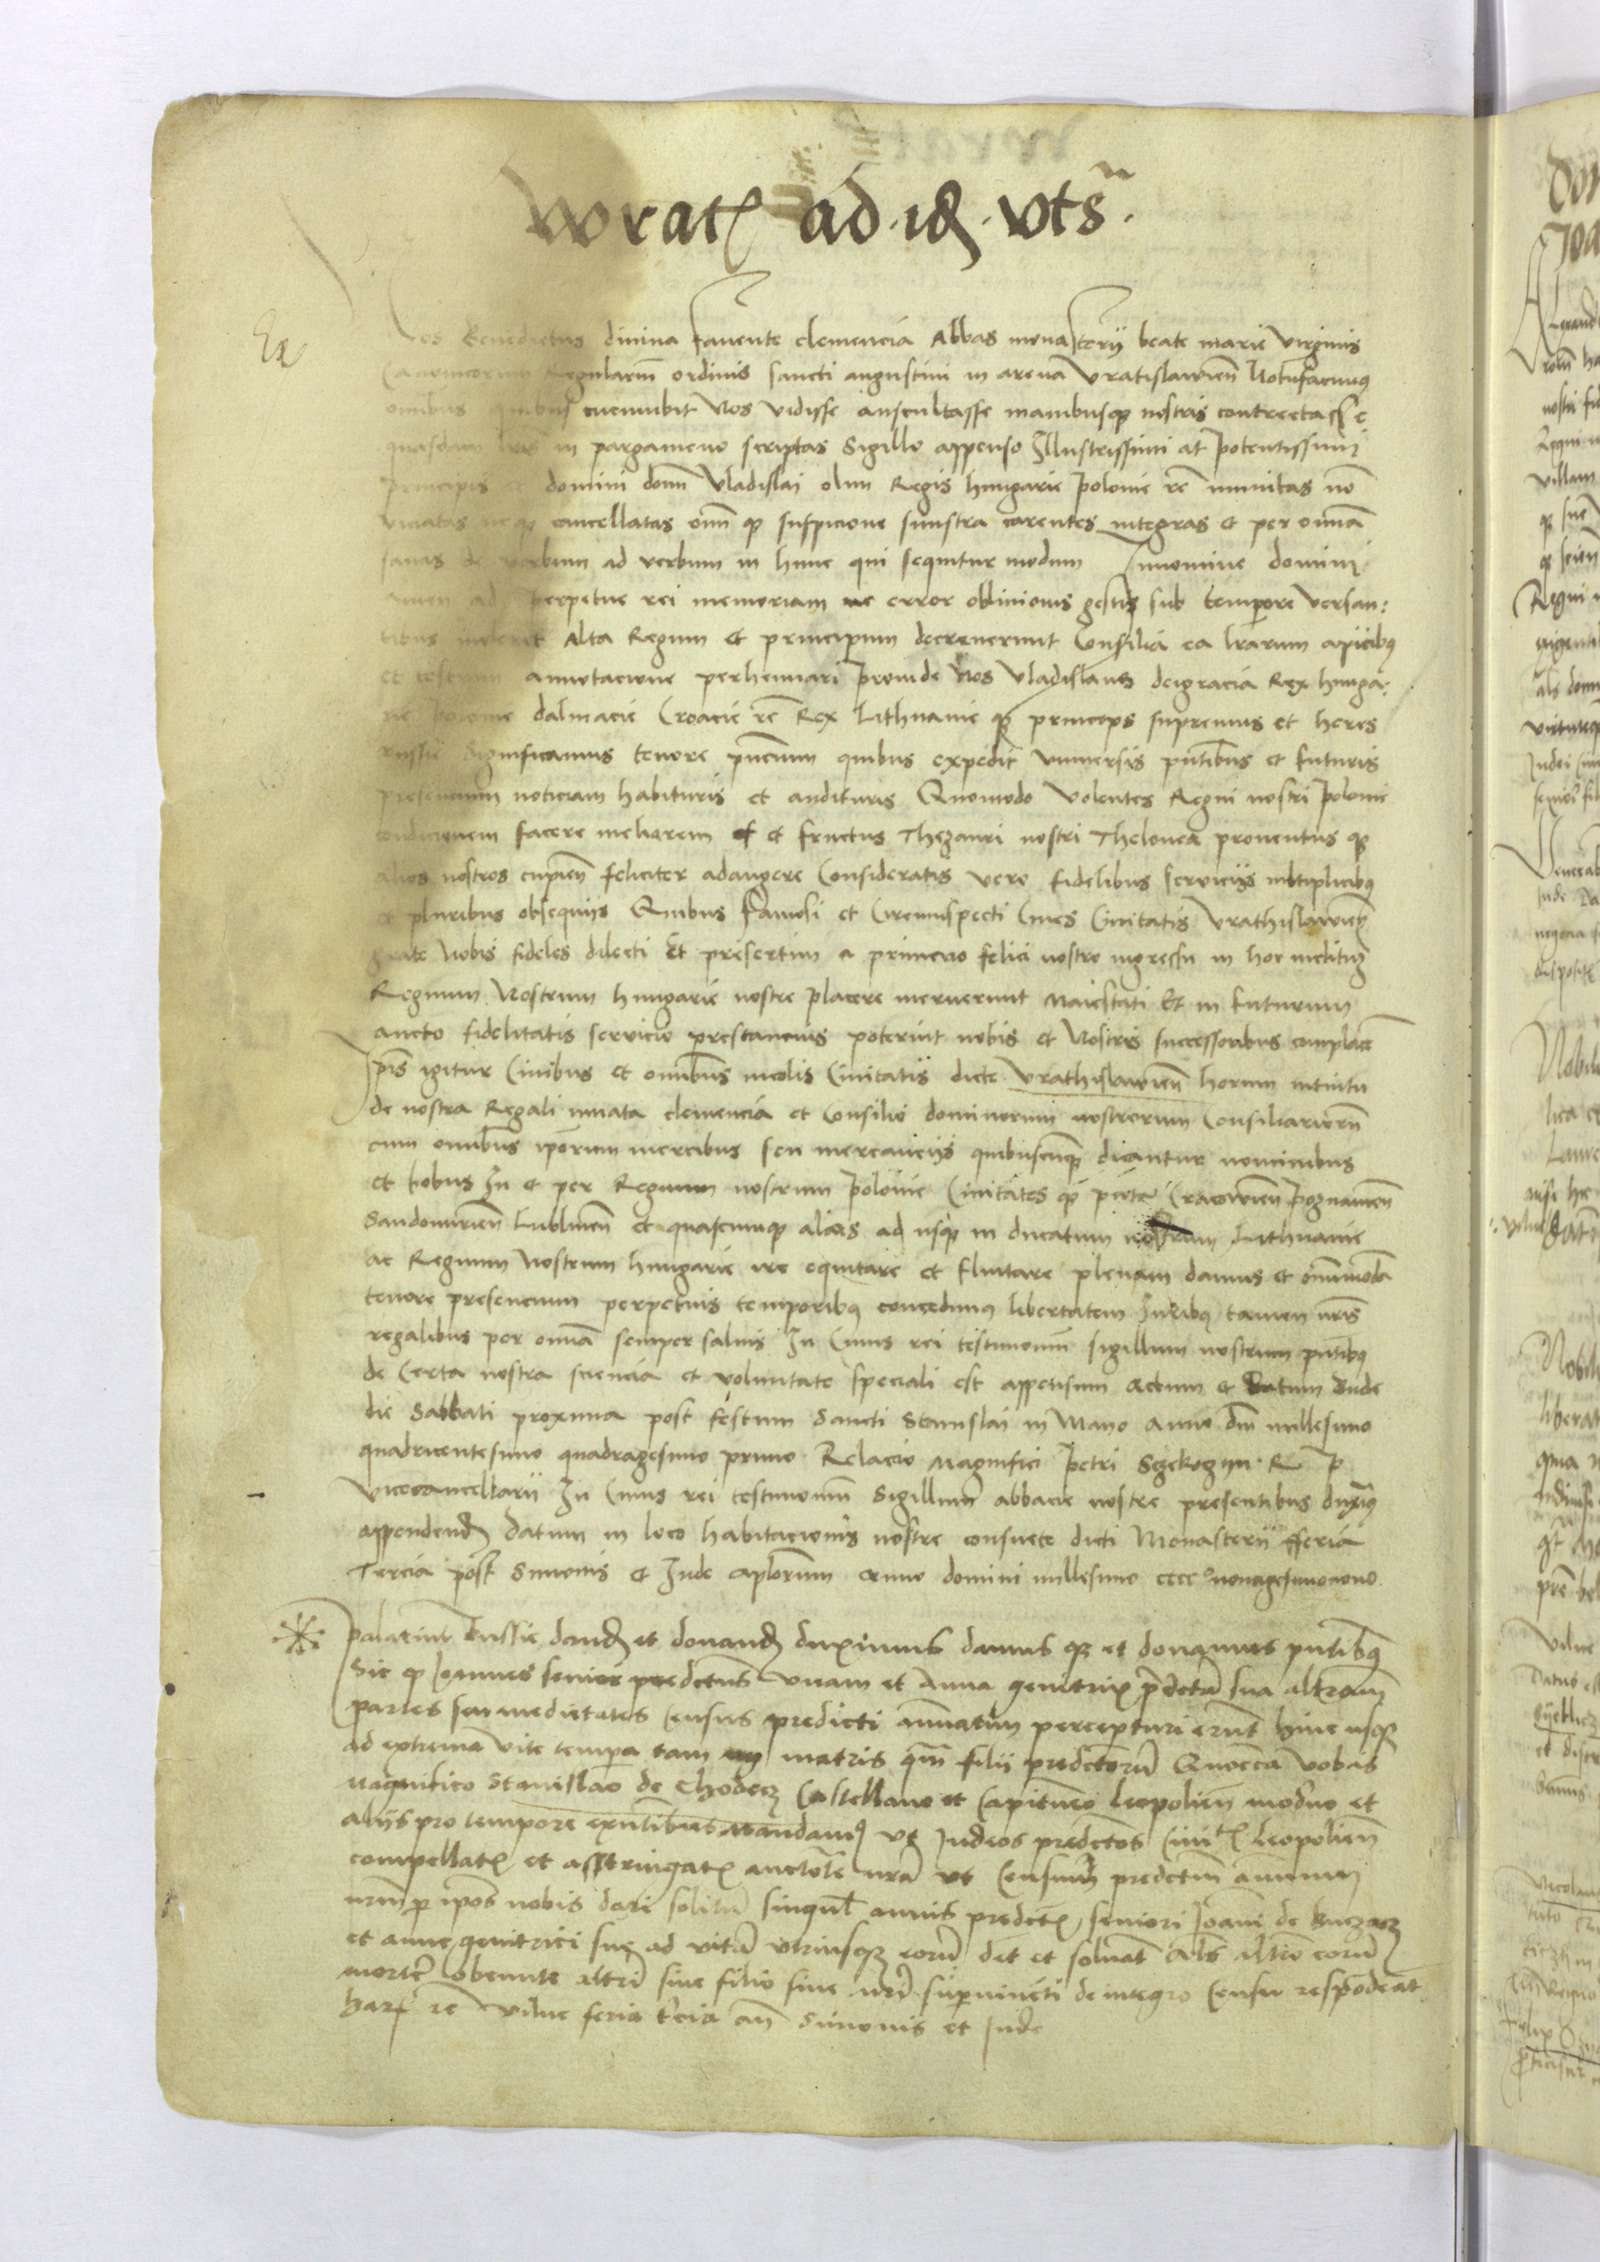 Wrat ad id vts
Ex
Nos Benedictus divina favente clemencia Abbas monasterij beate marie virginis
Canonicorum Regularium ordinis sancti augustini in arena Vratislavien Notumfacimus
omnibus quibus evenerit Nos vidisse auscultasse manibusque nostris contrectasse
quasdam lras in pargameno scriptas Sigillo appenso Illustrissimi at potentissimi
principis et domini domi Vladislai olim Regis hungarie polonie rc munitas no
viciatas neque cancellatas omi que suspicione sinistra carentes integras et per omia
sanas de verbum ad verbum in hunc qui sequitur modum Innomine domini
amen ad perpetue rei memoriam ne error oblivionis gestis sub tempore versan:
tibus Alta Regum et principum decreverunt Consilia ea lrarum apicibus
et testium annotacione perhennari proinde Nos Vladislaus deigracia Rex hunga:
rie polonie dalmacie Croacie rc Rex Lithuanie que princeps supremus et heres
russie Significamus tenore pncium quibus expedit universis pntibus et futuris
presencium noticiam habituris et audituris Quomodo volentes Regni nostri polonie
condicionem facere meliorem et fructus Thezauri nostri Thelonea proventus que
alios nostros cupien feliciter adaugere Consideratis vero fidelibus servicijs multiplicibus
et pluribus obsequijs Quibus famosi et Circumspecti Cives Civitatis Vrathislavien
grate Nobis fideles dilecti Et presertim a primevo felici nostro ingressu in hoc inclitum
Regnum Nostrum hungarie nostre placere meruerunt Maiestati Et in futurum
aucto fidelitatis servicio prestancius poterint nobis et Nostris successoribus complace
Ipis igitur Civibus et omibus incolis Civitatis dicte Vrathislavien horum intuitu
de nostra Regali innata clemencia et Consilio dominorum nostrorum Consiliariorum
cum omibus iporum mercibus seu mercancijs quibuscunque dicantur nominibus
et rebus In et per Regnum nostrum polonie Civitates que Cracovien poznanien
Sandomirien Lublinen et quascunque alias ad usque in ducatum nostrum Lithuanie
ac Regnum Nostrum hungarie ire equitare et fluitare plenam damus et omimoda
tenore presencium perpetuis temporibus concedimus libertatem Iuribus tamen nris
regalibus per omia semper salvis In Cuius rei testimonium sigillum nostrum pntibus
de Certa nostra sciencia et voluntate speciali est appensum Actum et Datum Bude
die Sabbati proxima post festum Sancti Stanislai in Mayo Anno dni millesimo
quadricentesimo quadragesimo primo Relacio Magnifici petri Szekoczyn R P
Vicecancellarii In Cuius rei testimonium Sigillum abbacie nostre presentibus duximus
appendendum datum in loco habitacionis nostre consuete dicti Monasterii fferia
Tercia post Simonis et Iude aplorum anno domini millesimo cccc nonagesimonono
palatino Russie dandum et donandum duximus damus que et donamus pntibus
Sic que Ioannes senior predictus unam et Anna genitrix predicta sua altram
partes seu medietates Census predicti annuatim percepturi erunt hinc usque
ad extrema vite tempora tam matris qam filii predictorum Quocca vobis
Magnifico Stanislao de Chodecz Castellano et Capitaneo Leopolien moderno et
aliis pro tempore existentibus mandamus ut Iudeos predictos Civit Leopolien
compellat et asstringat auctoritate nra ut Censum predictum annuum
nrm per ipos nobis dari solitum singul annis predict seniori Ioanni de Buczacz
et anne genitrici sue ad vitam utriusque eorum det et solvat als altro eorum
morte obeunte altri sive filio sive superviventi de integro Censu respondeat
harum rc Vilne feria tercia an Simonis et Iude